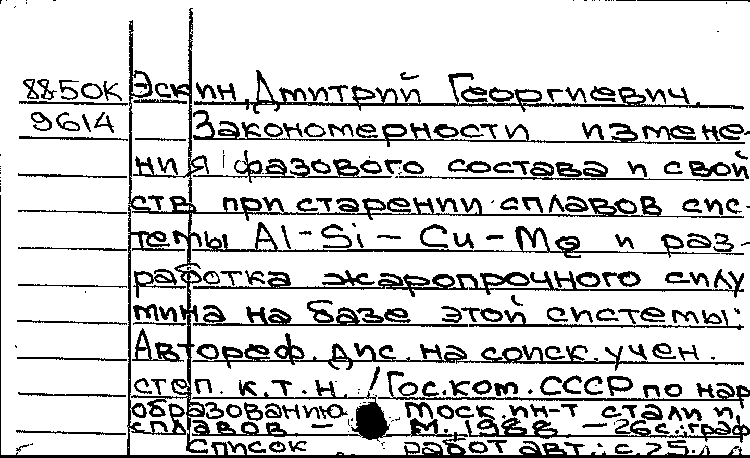 8850К Эскин, Дмитрий Георгиевич.
9614 Закономерности измене-
ния фазового состава и свой
ств при старении сплавов сис-
темы Al-Si-Cu-Mg и раз-
работка жаропрочного силу
мина на базе этой системы:
Автореф. дис. на соиск. учен.
степ. к.т.н. / Гос. ком. СССР по нар
образованию Моск. ин-т стали и
сплавов - М., 1988 - 26с.: граф
Список работ авт.: с. 25